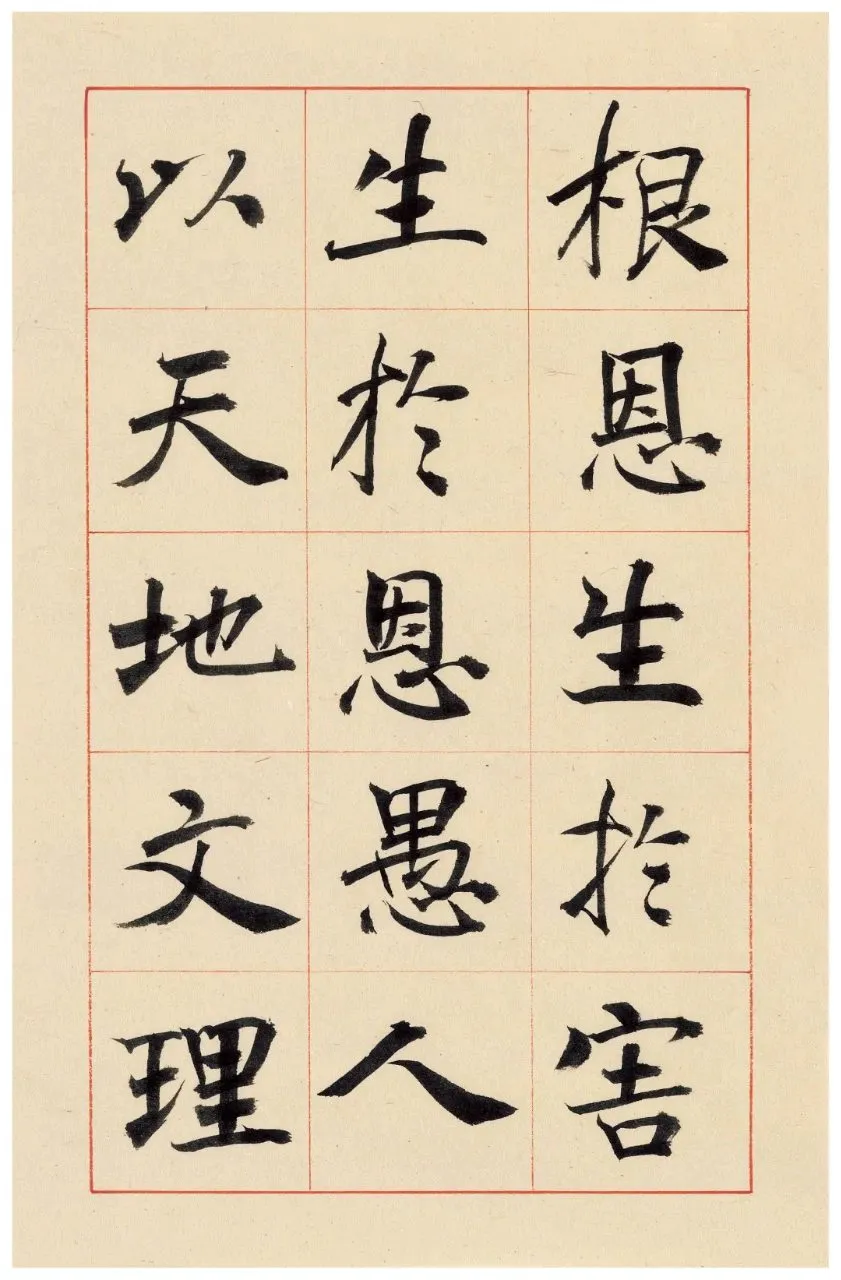 根恩生於害
生於恩愚人
以天地文理